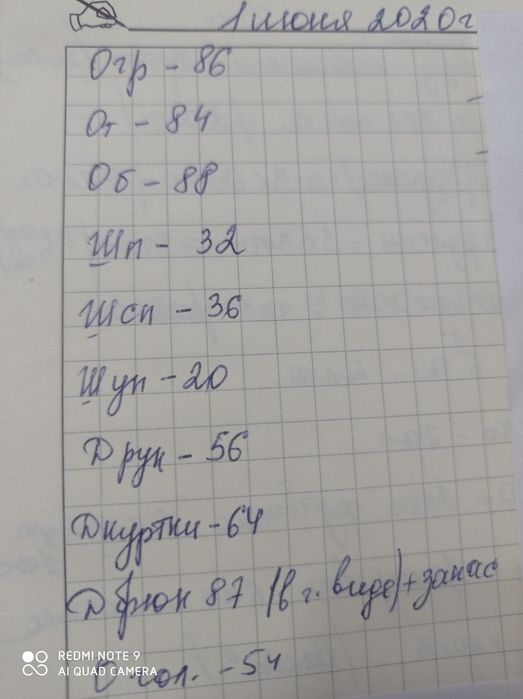 1 июня 2020г
Огр - 86
От - 84
Об - 88
Шп - 32
Шсп - 36
Шуп - 20
Друк - 56
Дкуртки - 64
Дбрюк 87 (в г. виде) + запас
О гол. - 54
REDMI NOTE 9
AI QUAD CAMERA